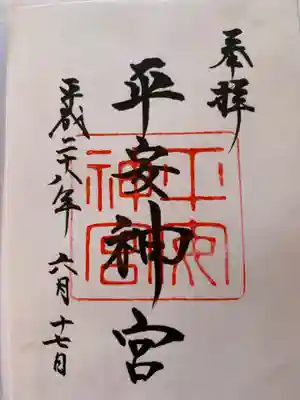 奉拝
平安神宮
平安神宮
平成二十八年 六月十七日